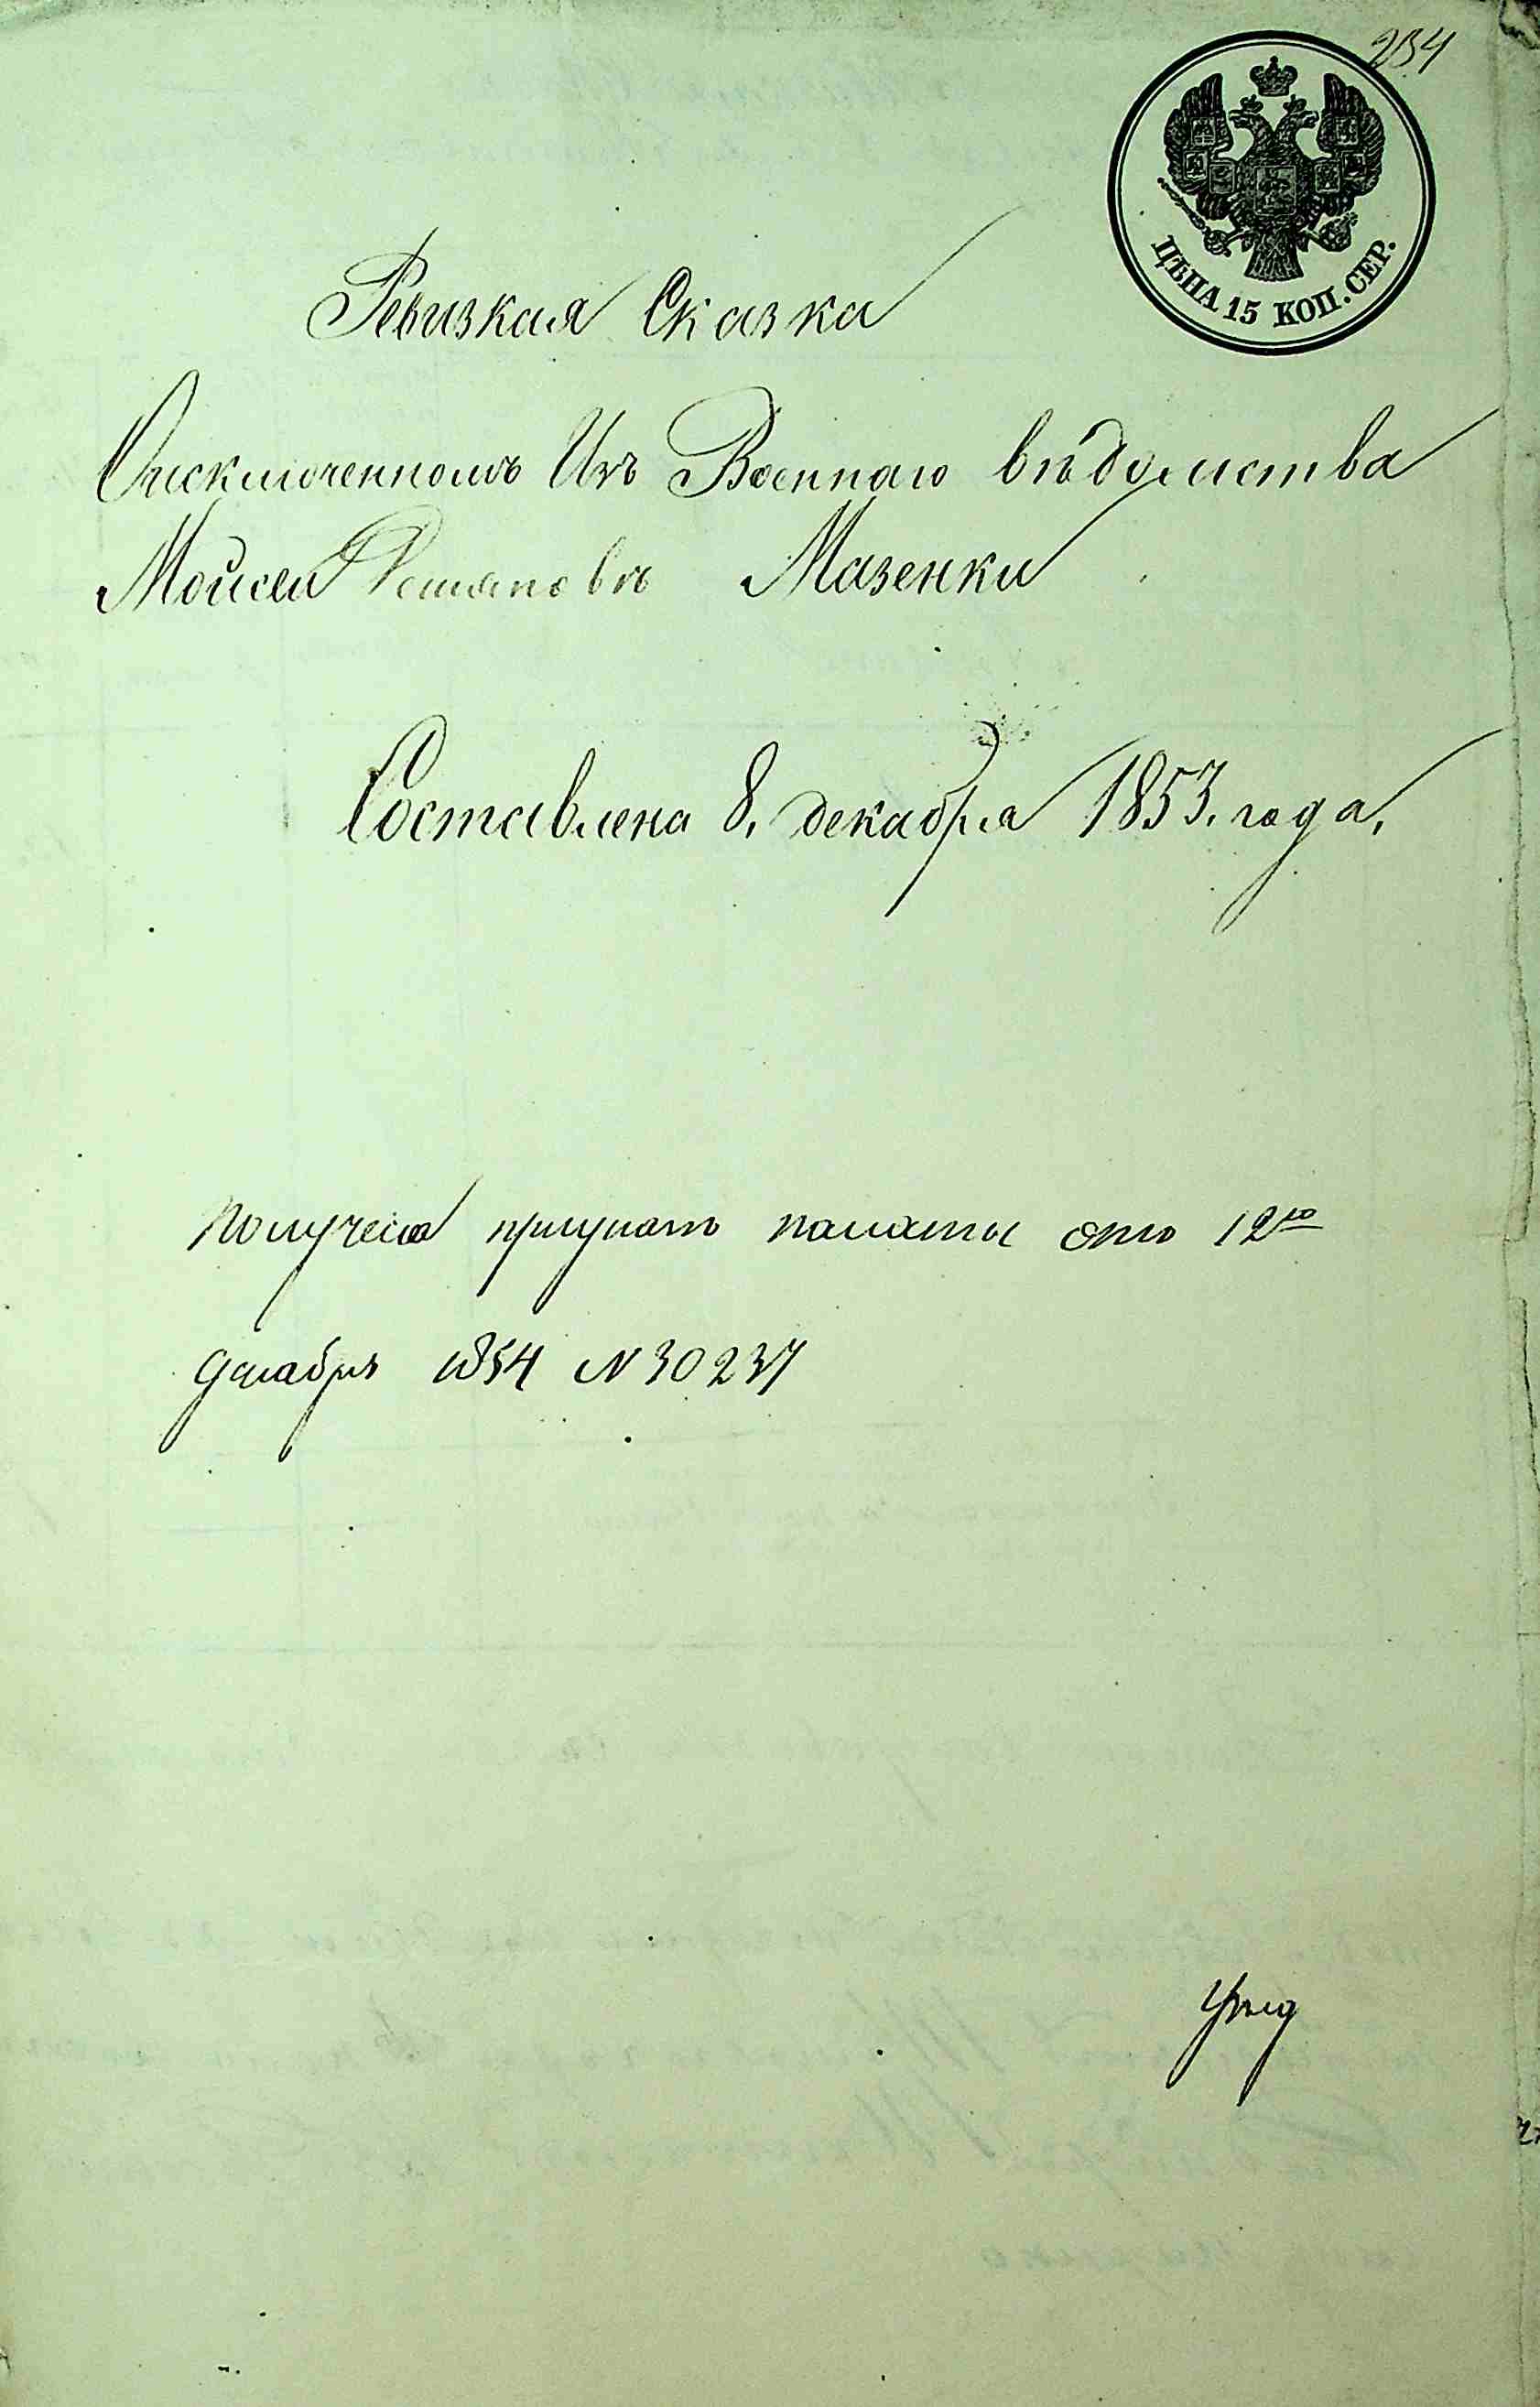 234
ЦѢНА 15 КОП. СЕР.
Ревизкая Сказка
Оисключенномъ Изъ Военнаго вѣдомства
Мойсеи Мазенки
Составлена 8, декабря 1853, года,
Получена при указѣ палаты отъ 12го
декабря 1854 N 30237